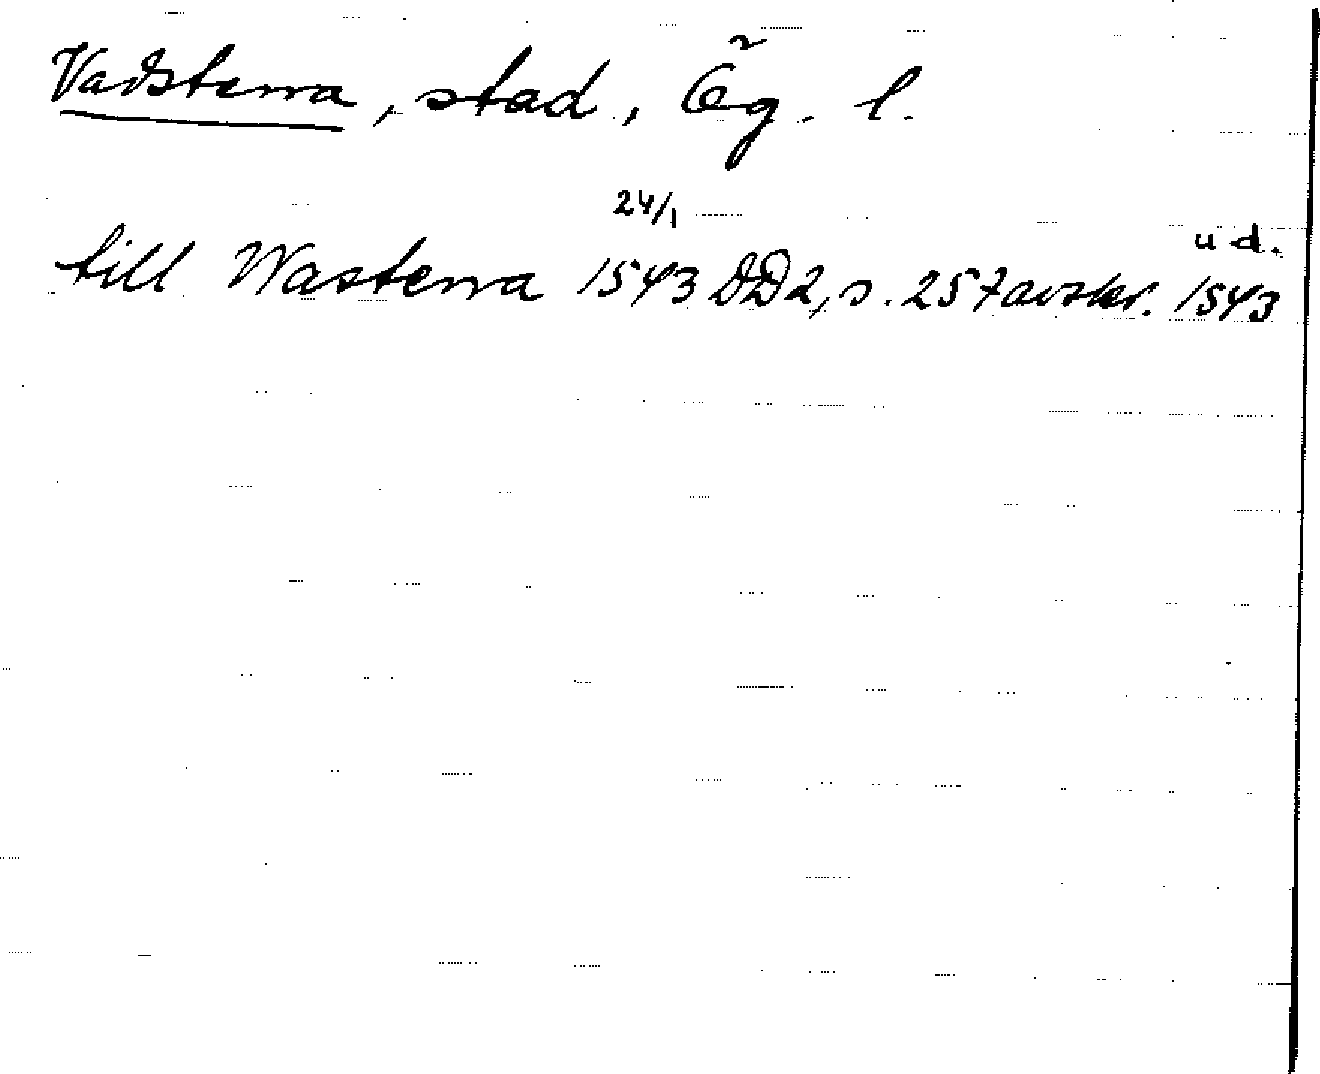 Vadstena, stad, Ög. l.
24/1 u d.
till Wastena 1543 DD2, s. 257 avskr. 1543